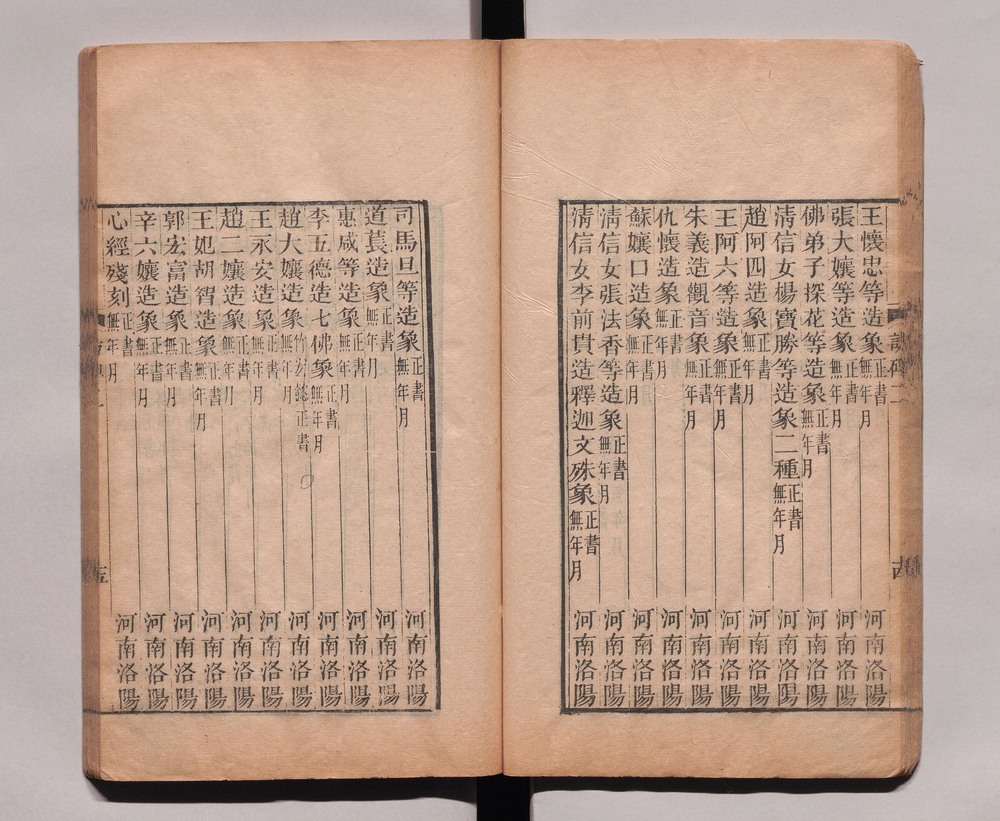 王懷忠等造象正書無年月 河南洛陽
張大孃等造象正書無年月 河南洛陽
佛弟子探花等造象正書無年月 河南洛陽
清信女楊寶勝等造象二種正書無年月 河南洛陽
趙阿四造象正書無年月 河南洛陽
王阿六等造象正書無年月 河南洛陽
朱義造觀音象正書無年月 河南洛陽
仇懷造象正書無年月 河南洛陽
蘇孃口造象正書無年月 河南洛陽
清信女張法香等造象正書無年月 河南洛陽
清信女李前貫造釋迦文殊象正書無年月 河南洛陽
司馬旦等造象正書無年月 河南洛陽
道萇造象正書無年月 河南洛陽
惠咸等造象正書無年月 河南洛陽
李五德造七佛象正書無年月 河南洛陽
趙大孃造象正書無年月 河南洛陽
王永安造象正書無年月 河南洛陽
趙二孃造象正書無年月 河南洛陽
王 胡智造象正書無年月 河南洛陽
郭宏富造象正書無年月 河南洛陽
辛六孃造象正書無年月 河南洛陽
心經殘刻正書無年月 河南洛陽